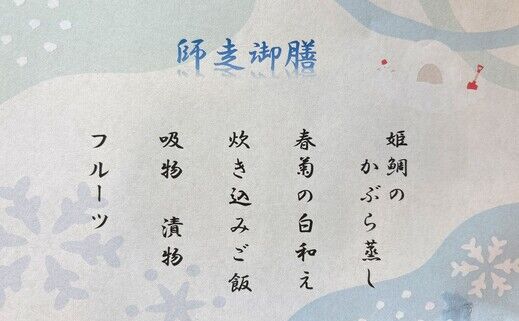 師走御膳
姫鯛の
かぶら蒸し
春菊の白和え
炊き込みご飯
吸物　漬物
フルーツ